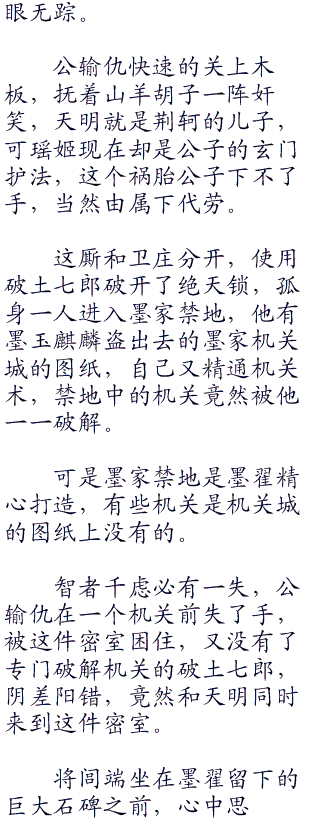 眼无踪。
公输仇快速的关上木
板，抚着山羊胡子一阵奸
笑，天明就是荆轲的儿子，
可瑶姬现在却是公子的玄门
护法，这个祸胎公子下不了
手，当然由属下代劳。
这厮和卫庄分开，使用
破土七郎破开了绝天锁，孤
身一人进入墨家禁地，他有
墨玉麒麟盗出去的墨家机关
城的图纸，自己又精通机关
术，禁地中的机关竟然被他
一一破解。
可是墨家禁地是墨翟精
心打造，有些机关是机关城
的图纸上没有的。
智者千虑必有一失，公
输仇在一个机关前失了手，
被这件密室困住，又没有了
专门破解机关的破土七郎，
阴差阳错，竟然和天明同时
来到这件密室。
将闾端坐在墨翟留下的
巨大石碑之前，心中思